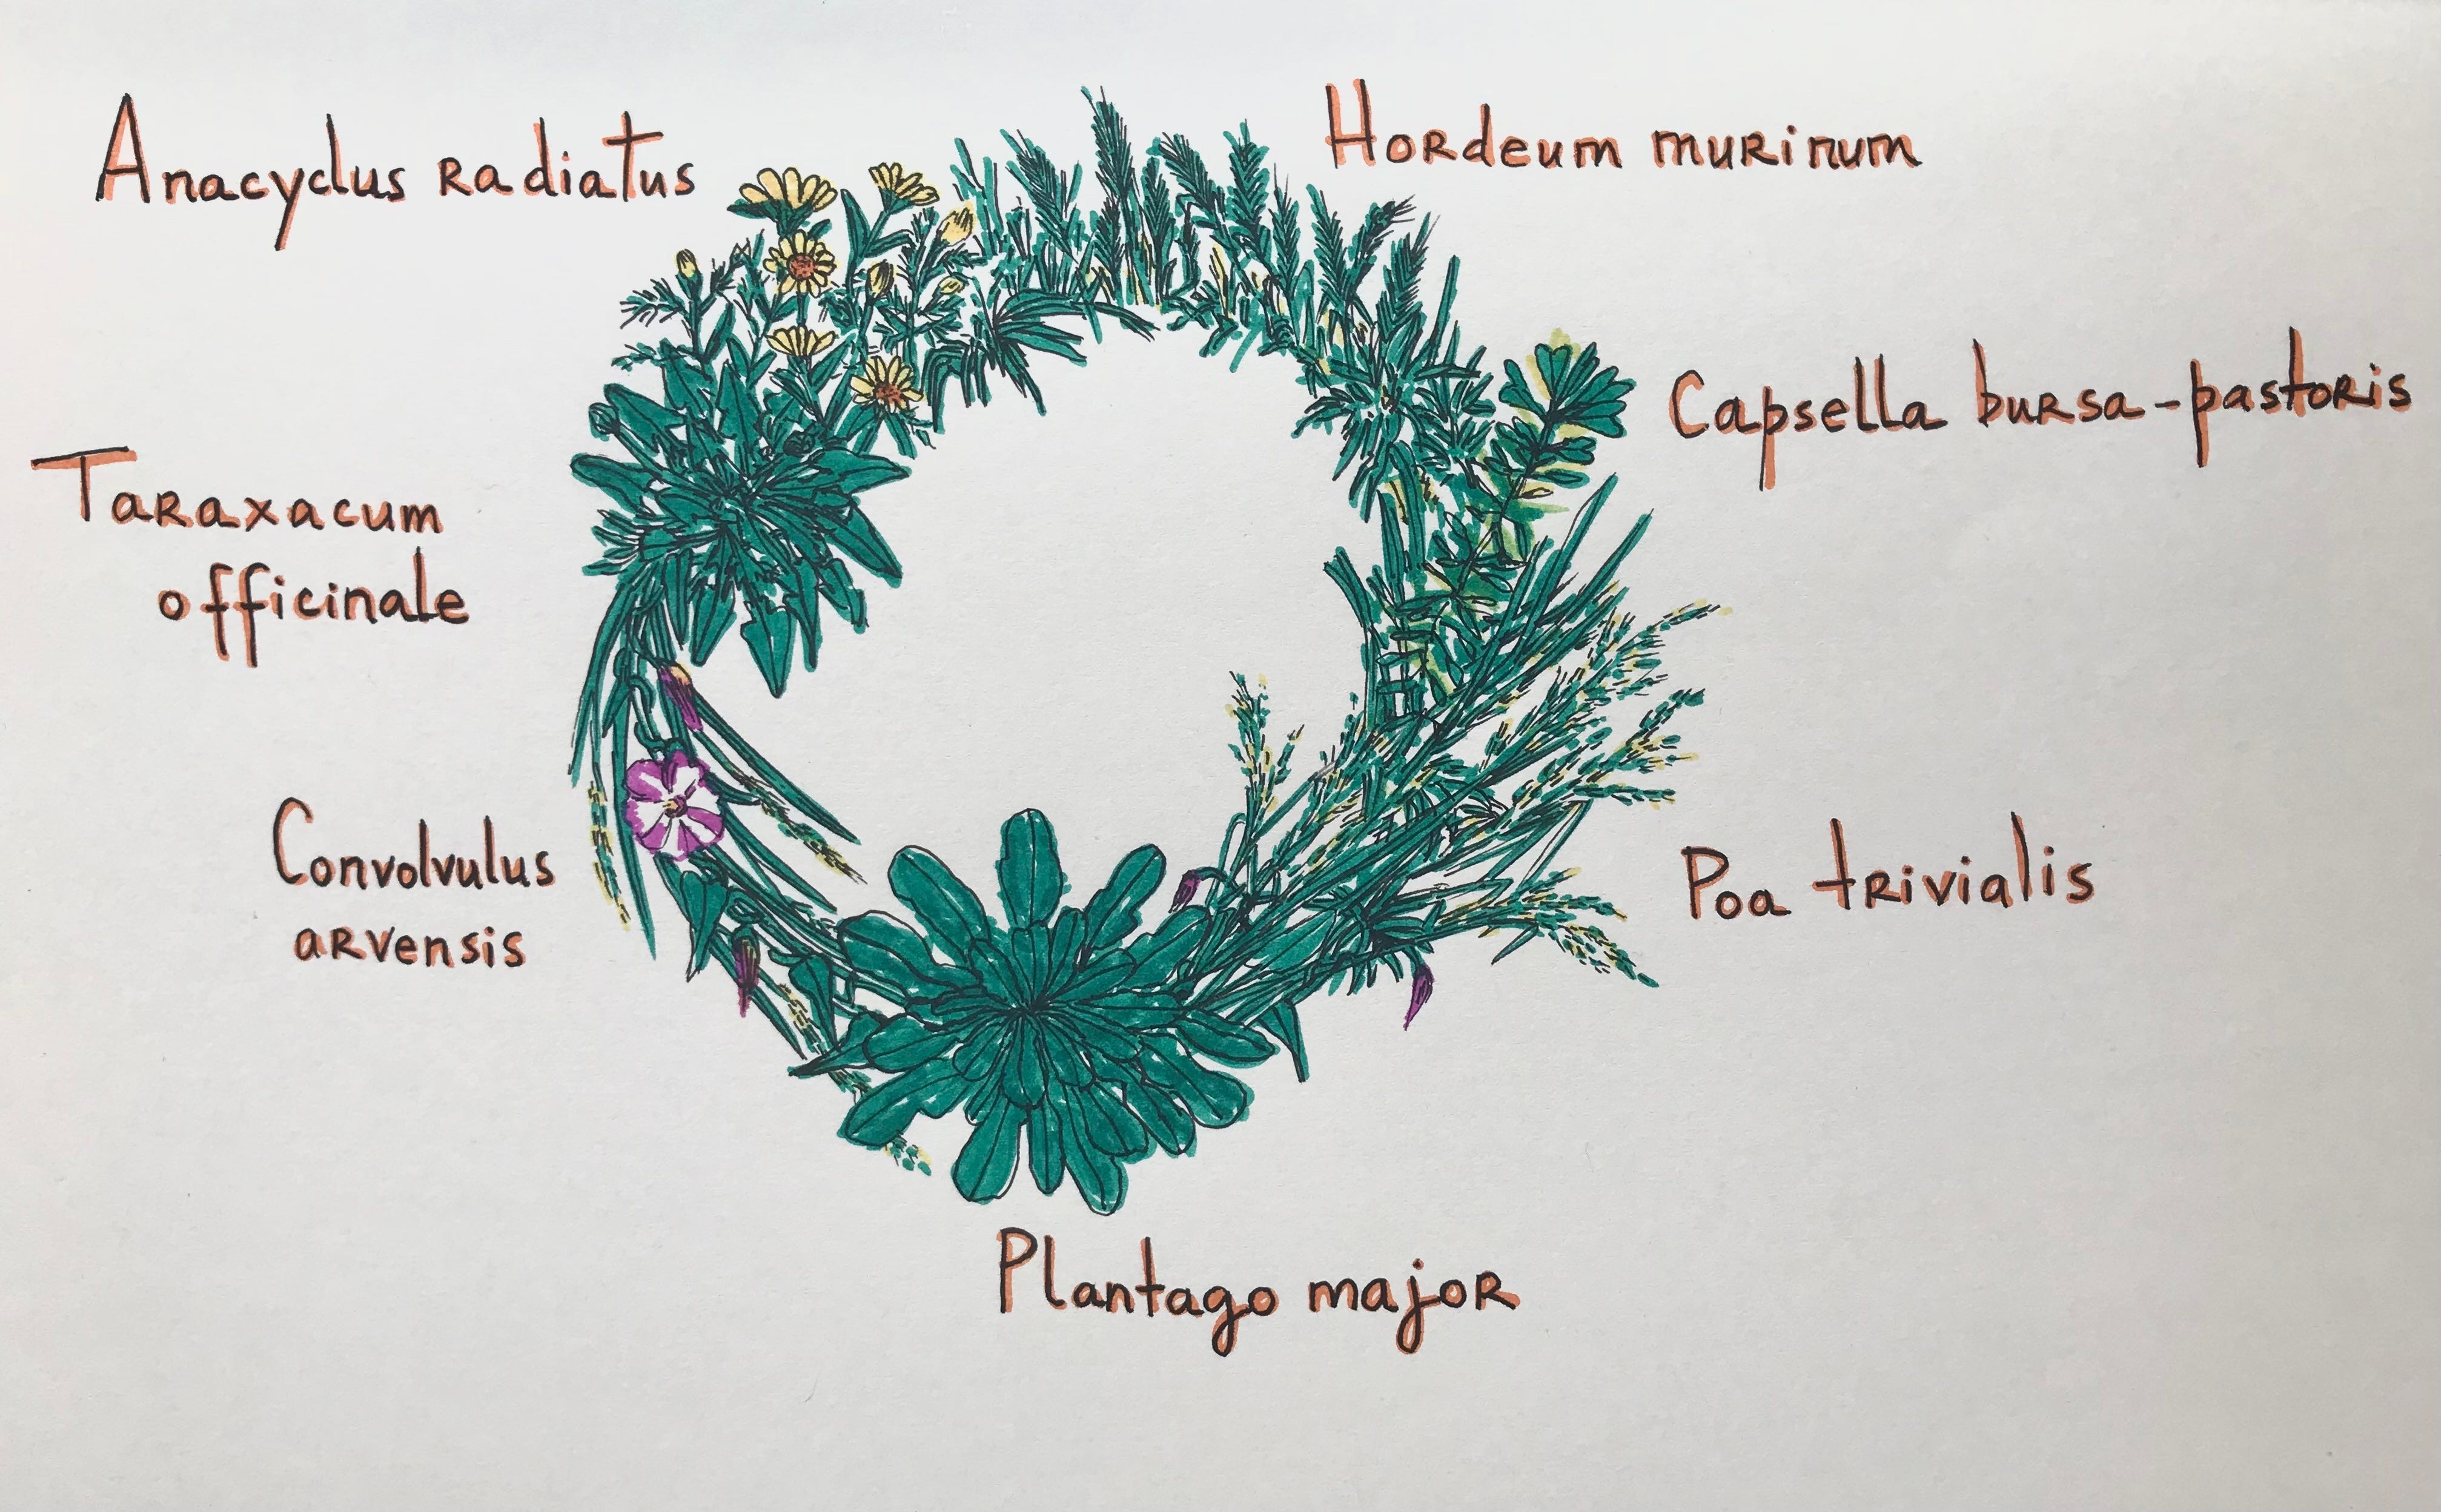 Anacyclus radiatus
Hordeum murinum
Capsella bursa-pastoris
Taraxacum
officinale
Convolvulus
arvensis
Poa trivialis
Plantago major